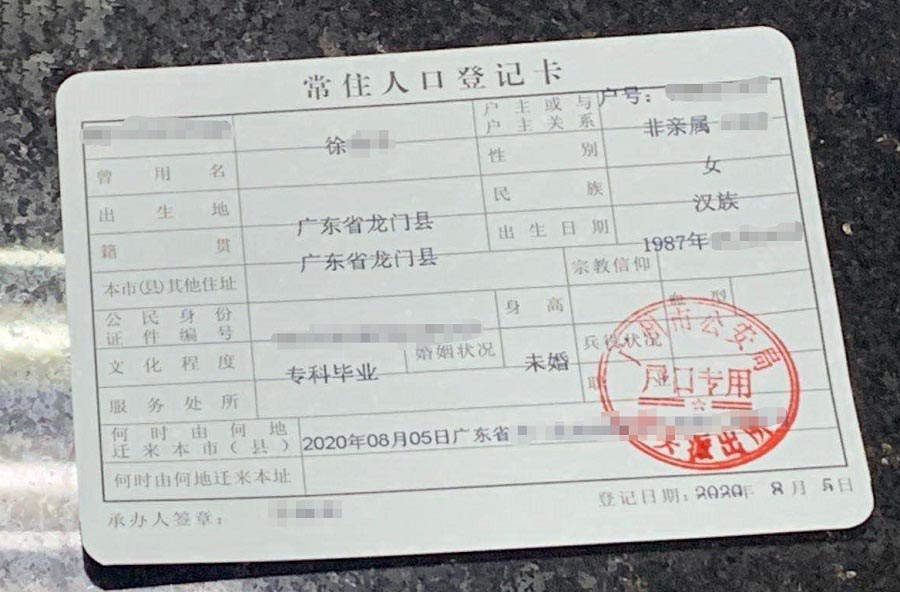 常住人口登记卡
户号：
徐
户主或与
户主关系
非亲属
曾用名
性别
女
出生地
广东省龙门县
民族
汉族
籍贯
广东省龙门县
出生日期
1987年
本市(县)其他住址
宗教信仰
公民身份
证件编号
身高
血型
文化程度
专科毕业
婚姻状况
未婚
兵役状况
服务处所
何时由何地
迁来本市(县)
2020年08月05日广东省
何时由何地迁来本址
承办人签章：
登记日期：2020年 8月 5日
市公安局
户口专用
派出所